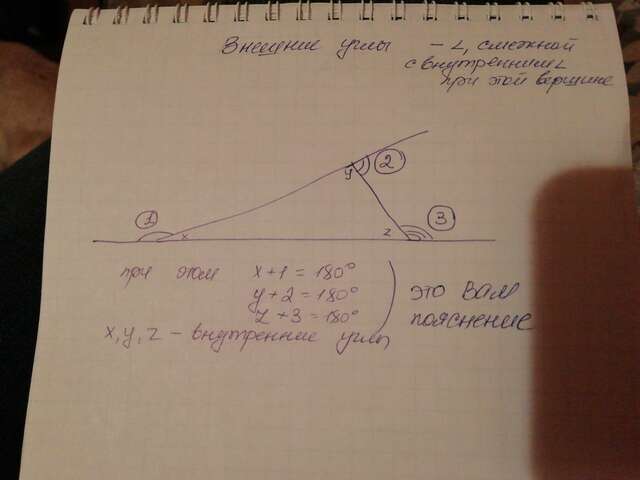 Внешние углы – ∠, смежной
с внутренним∠
при этой вершине
2
y
1
x
z
3
при этом x+1=180°
y+2=180°
z+3=180°
это вам
пояснение
x, y, z – внутренние углы